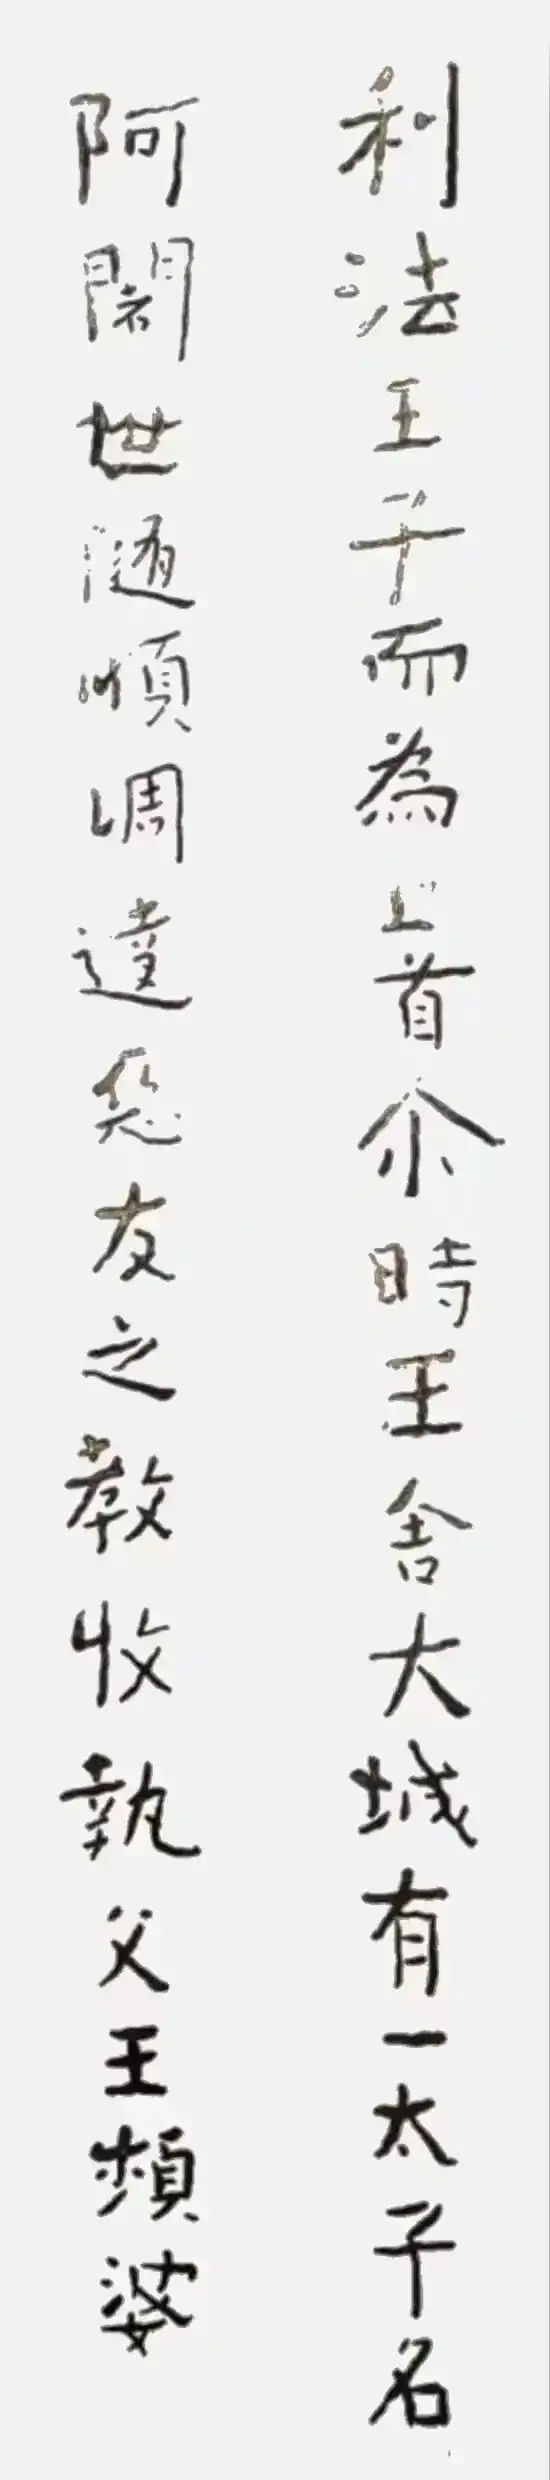 利法王子而為上首尒時王舍大城有一太子名
阿闍世随順調達惡友之教收執父王頻婆